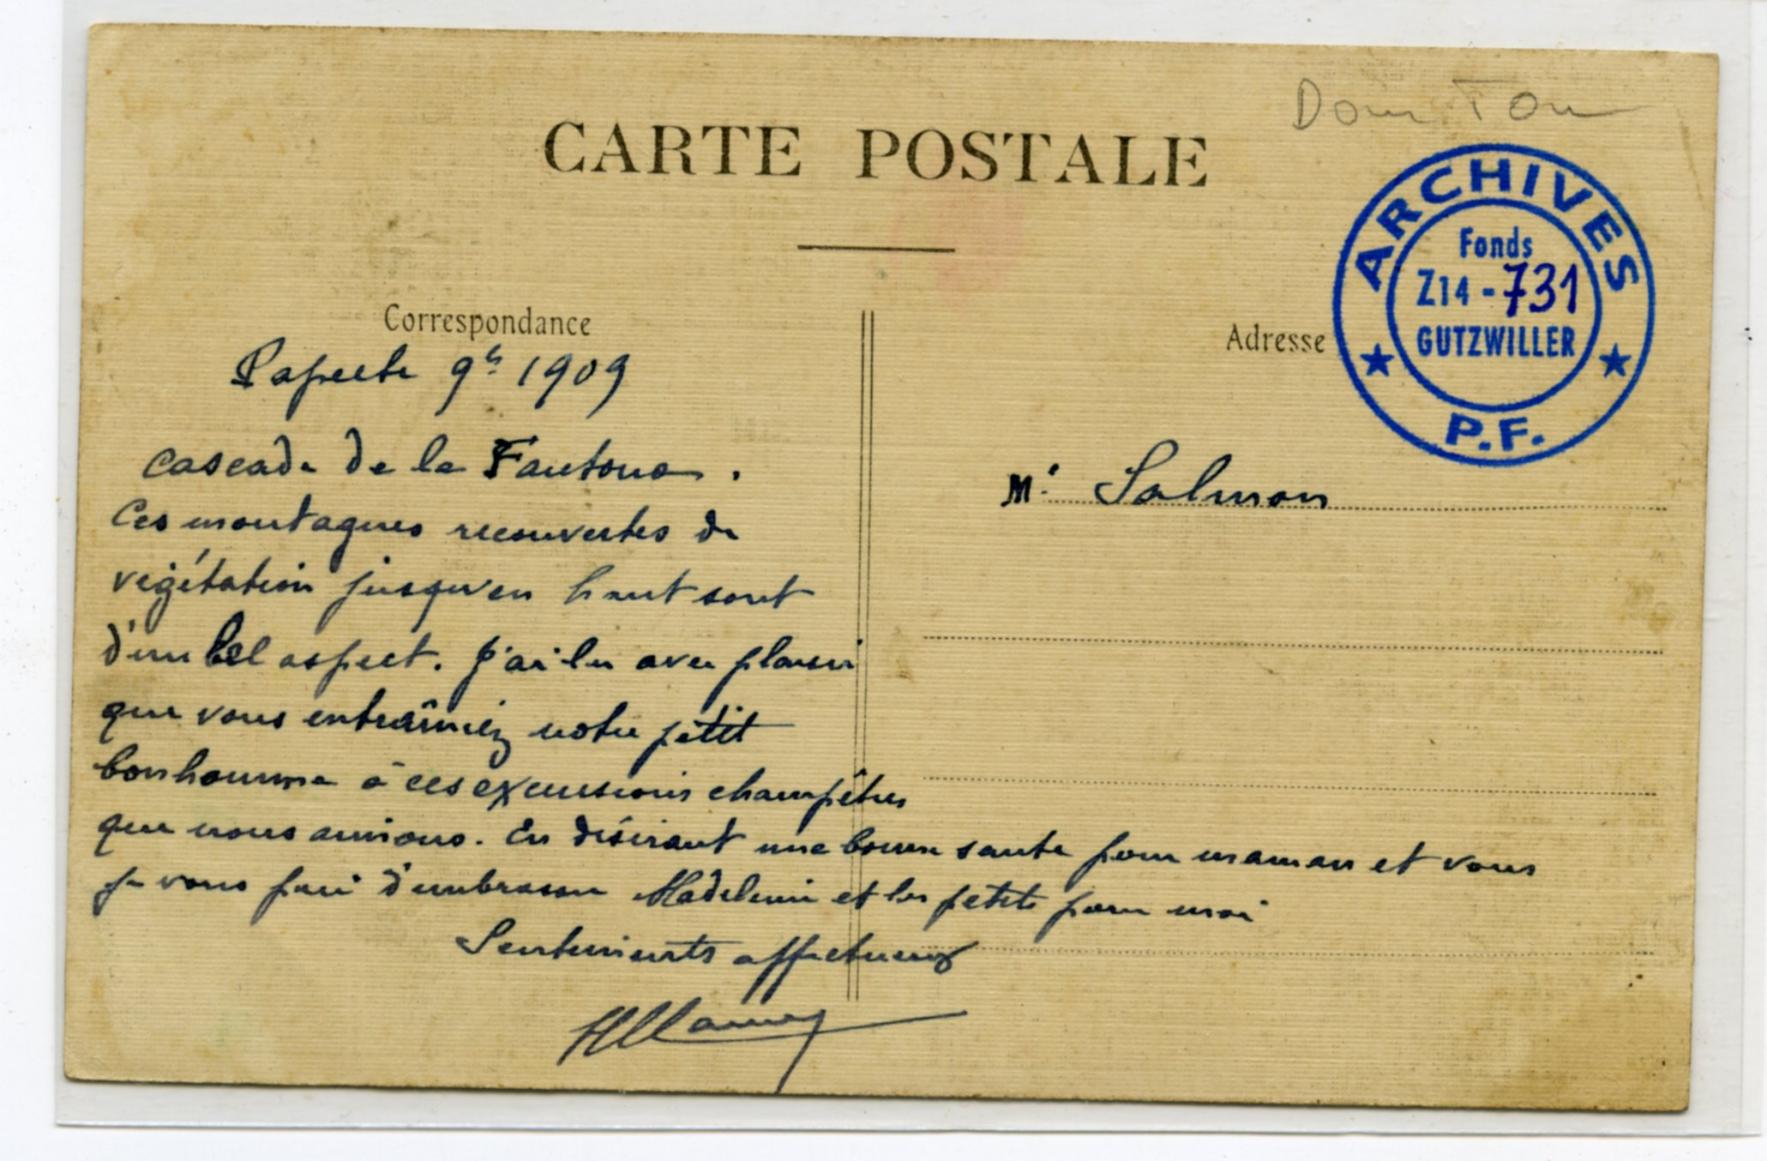 Dom Tom
CARTE POSTALE
ARCHIVES
Fonds
Z14-731
GUTZWILLER
P.F.
Correspondance
Adresse
Papeete 9h 1909
Cascade de la Fautoua.
Ces montagnes recouvertes de
végétation jusqu'en haut sont
d'un bel aspect. J'ai lu avec plaisir
que vous entraîniez notre petit
bonhomme à ces excursions champêtres
que nous aimions. En désirant une bonne santé pour maman et vous
je vous prie d'embrasser Madeleine et les petits pour moi
Sentiments affectueux
Mr. Salmon